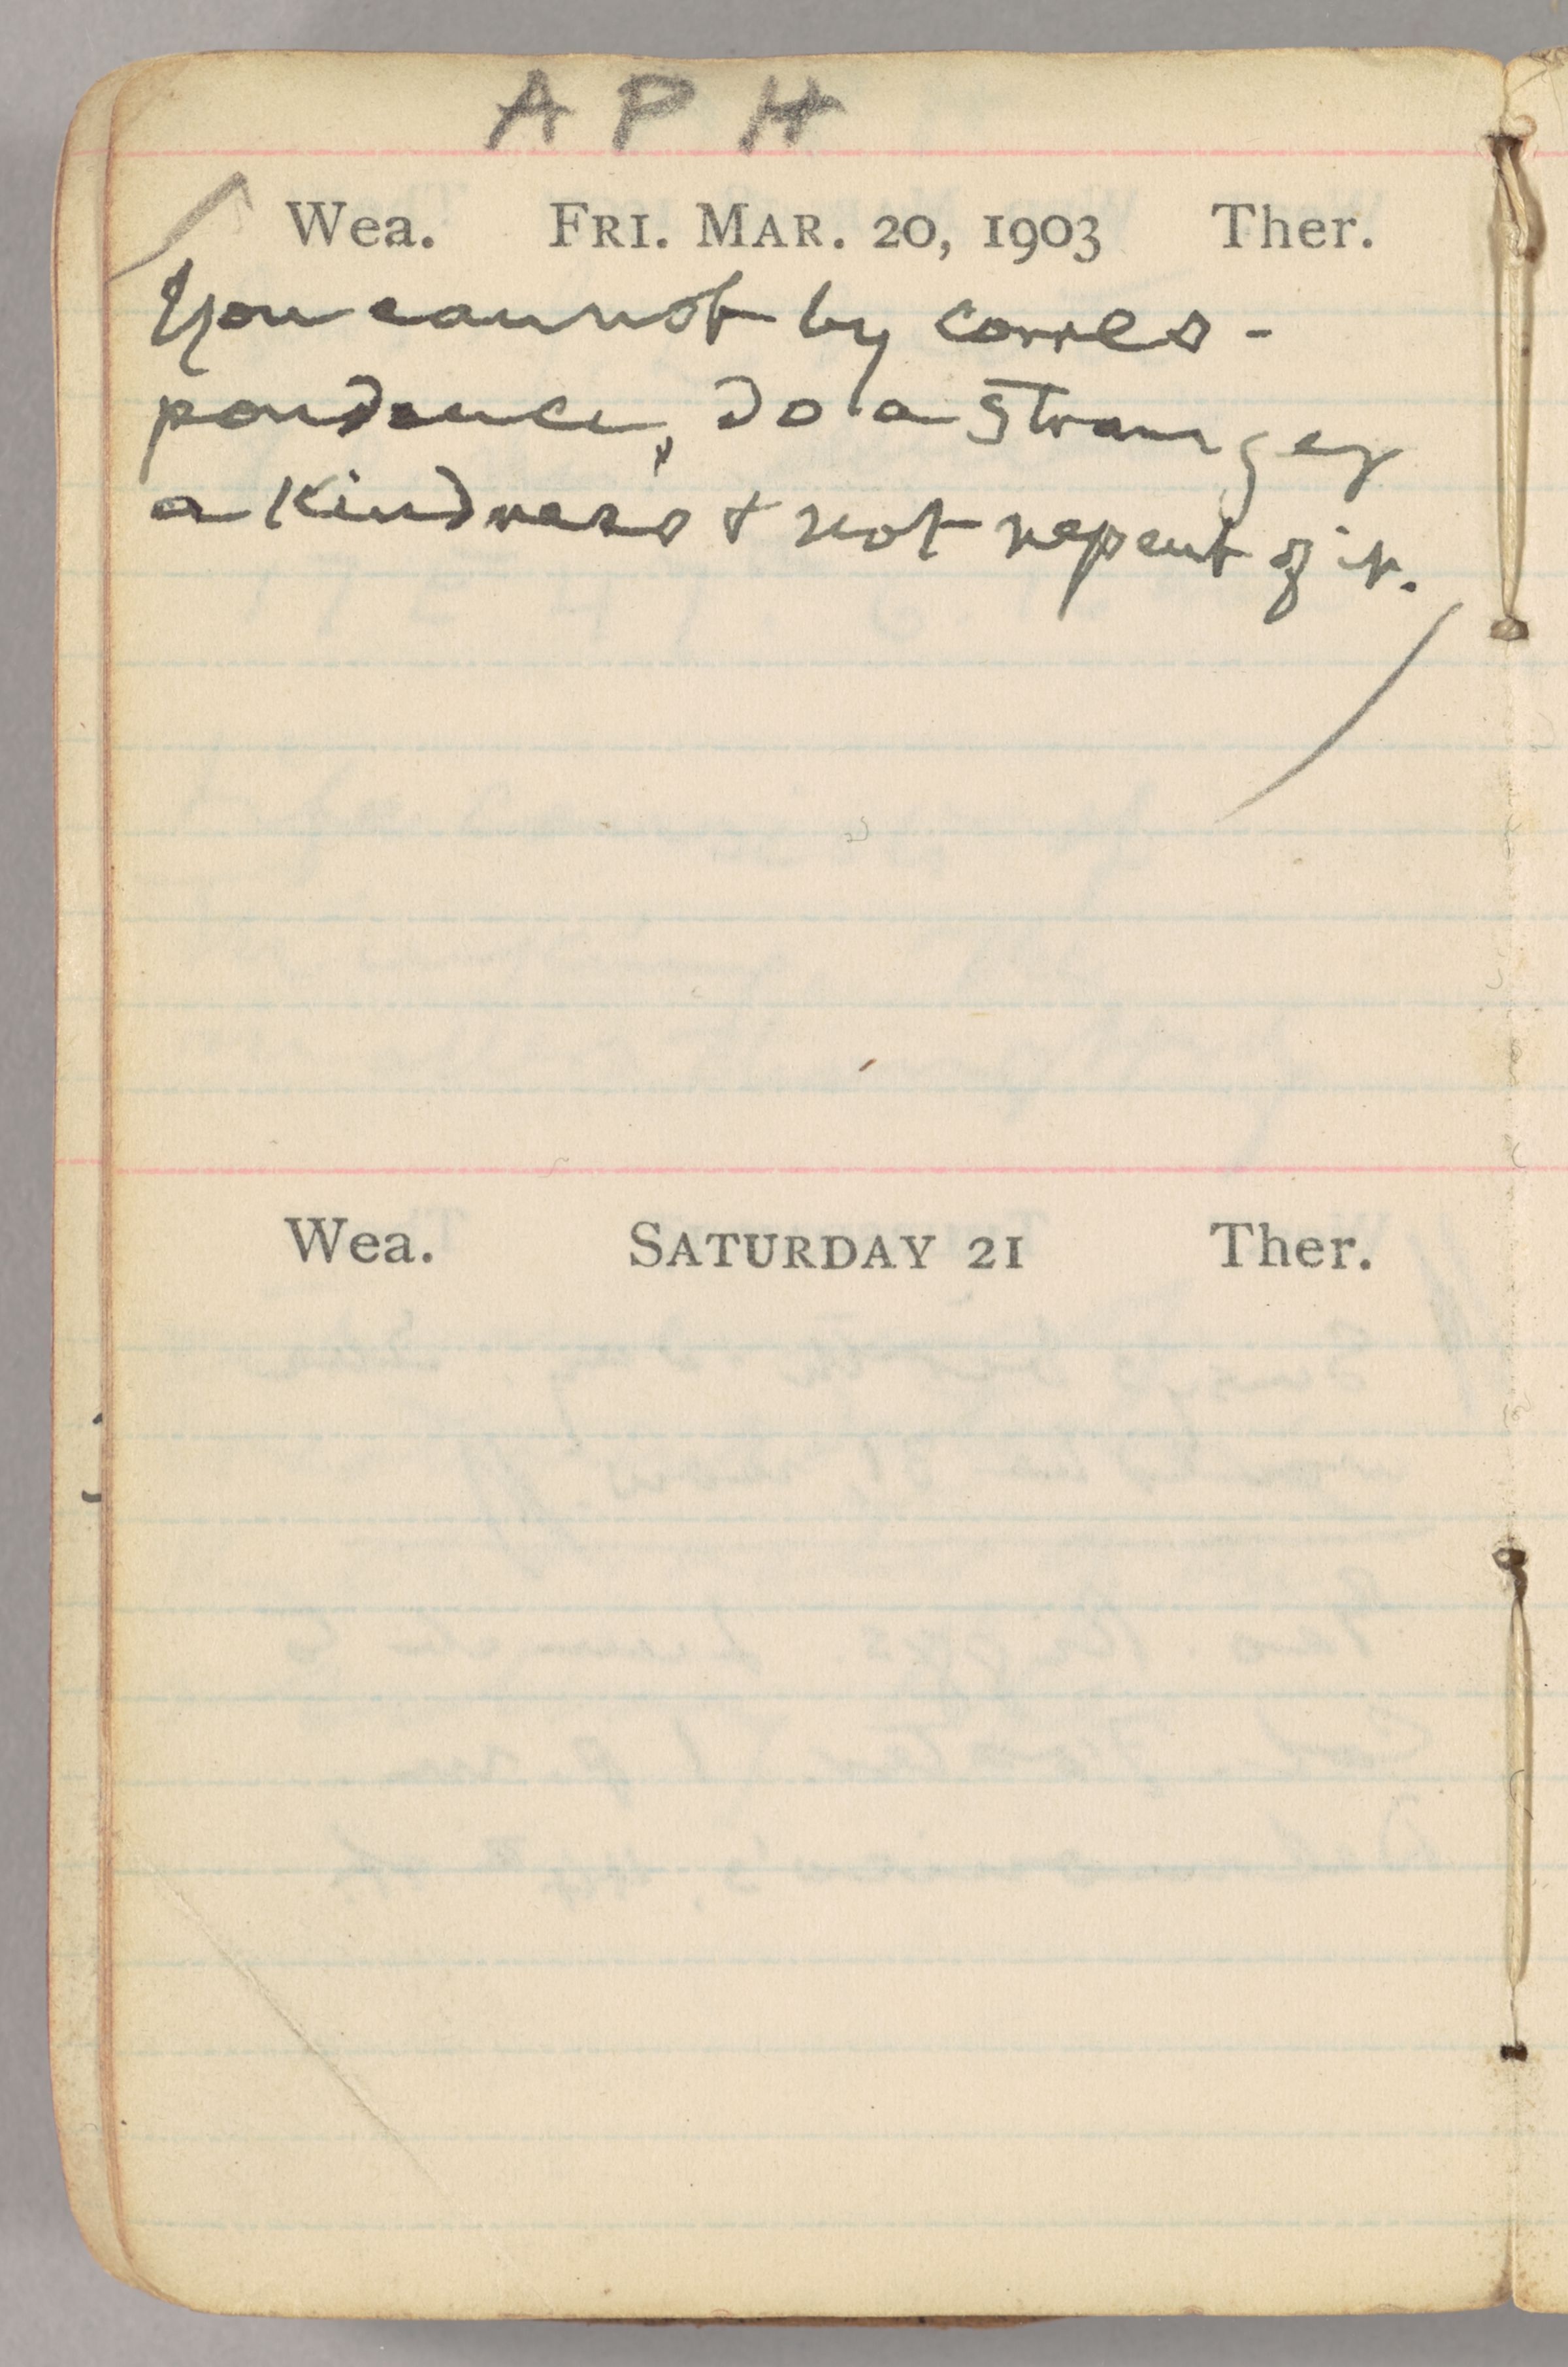 A P H
Wea. FRI. MAR. 20, 1903 Ther.
You cannot by corres-
pondence, do a stranger
a kindness & not repent of it.
Wea. SATURDAY 21 Ther.